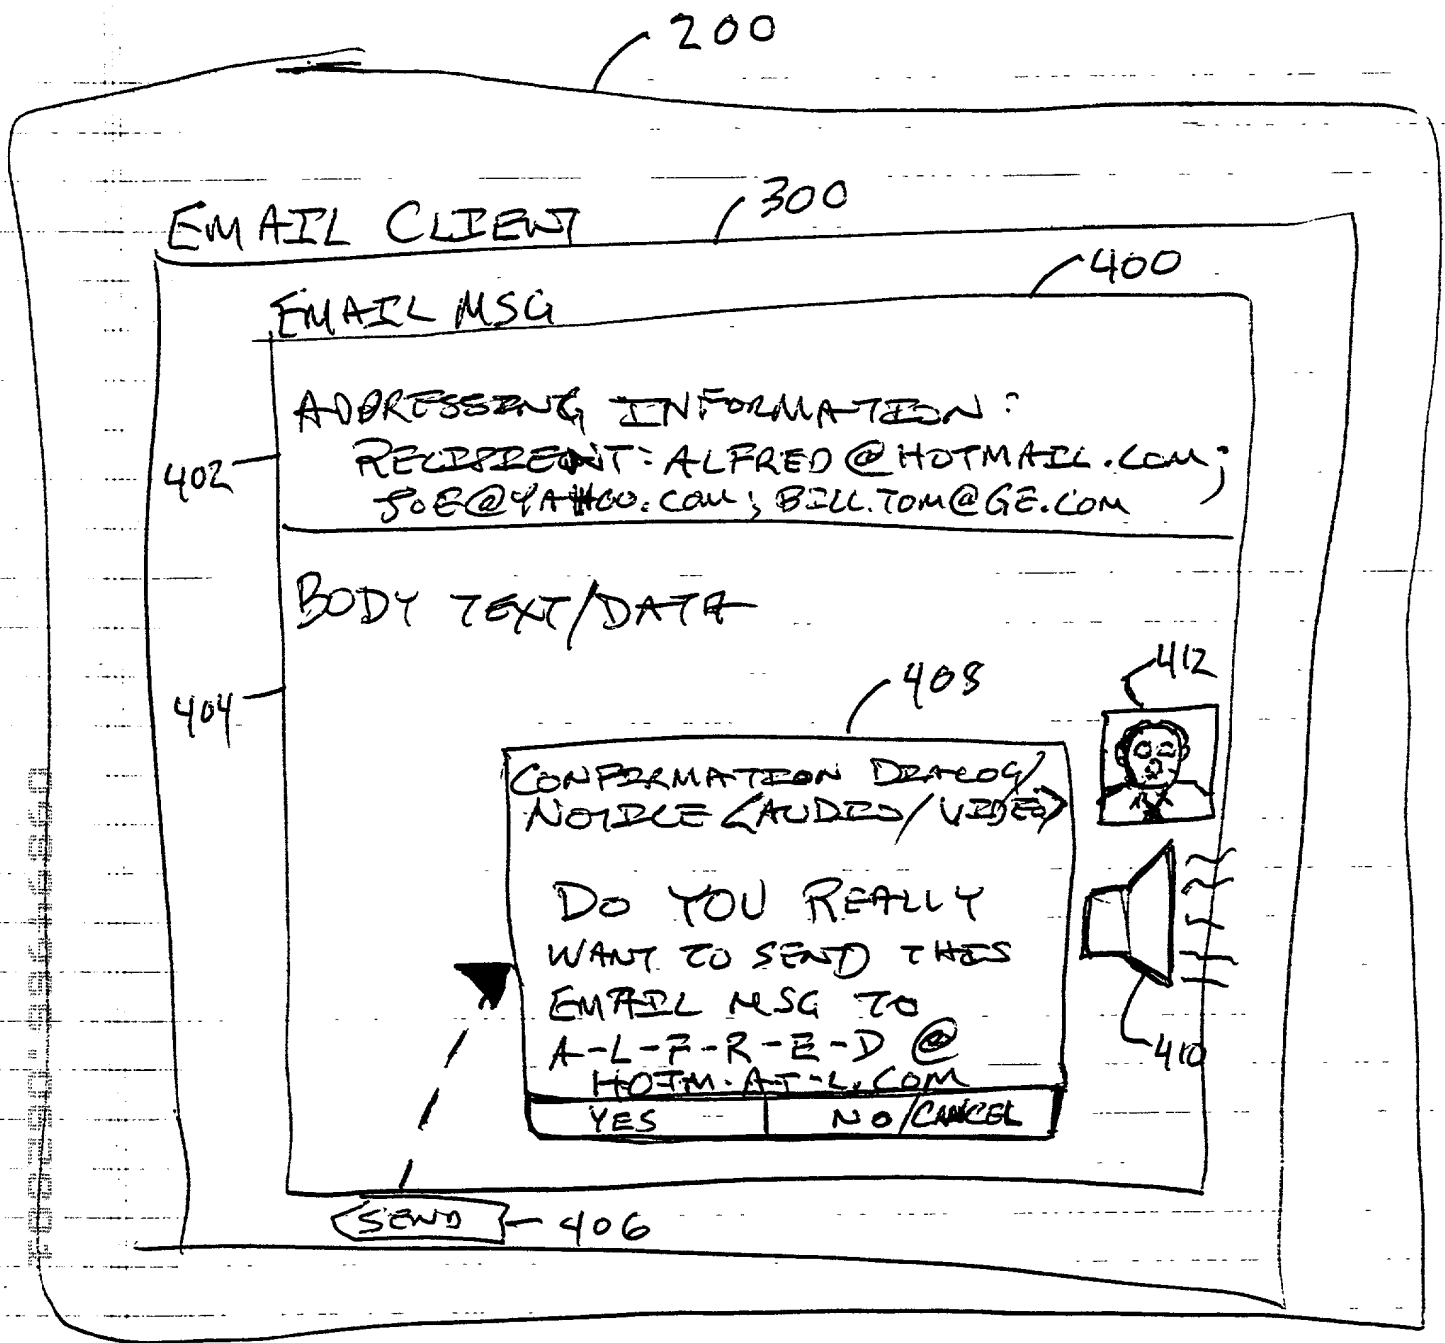 200
EMAIL CLIENT
300
400
EMAIL MSG
ADDRESSING INFORMATION:
402
RECIPIENT: ALFRED@HOTMAIL.COM;
JOE@YAHOO.COM; BILL.TOM@GE.COM
BODY TEXT/DATA
404
408
412
CONFIRMATION DIALOG/
NOTICE (AUDIO/VIDEO)
DO YOU REALLY
WANT TO SEND THIS
EMAIL MSG TO
A-L-F-R-E-D @
HOTM-A-I-L.COM
410
YES
NO/CANCEL
SEND
406